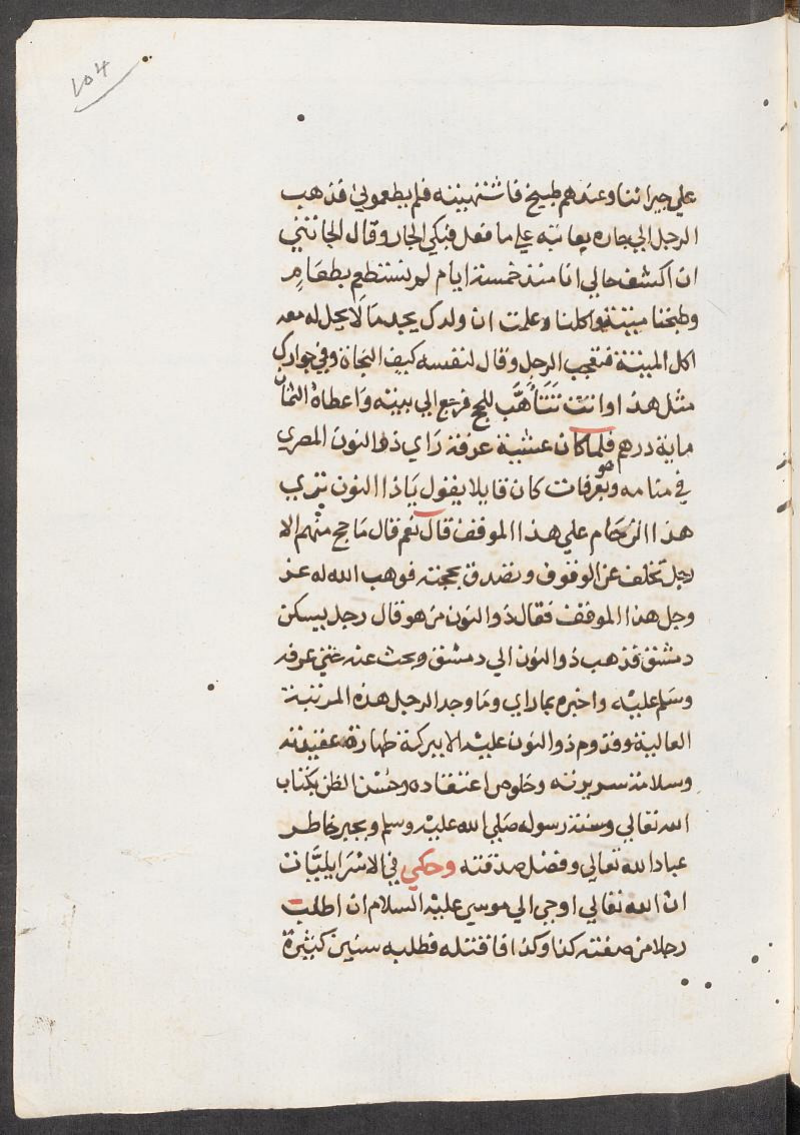 ١٥٤
علي جيراننا وعندهم طبيخ فاشتهيته فلم يطعموني فذهب
الرجل الي جاره يعاتبه علي ما فعل فبكي الجار وقال الجاتني
ان اكشف حالي انا منذ خمسة ايام لم نستطعم بطعَامٍ
وطبخنا ميتة واكلنا وعلمت ان ولدك يجد مَا لَا يحل له معه
اكل الميتة فتعجب الرجل وقال لنفسه كيف النجاة وفي جوارك
مثل هذا وانت تَتَأهَّب للحج فرجع الي بيته وَاعطاهُ الثمان
ماية درهم فلما كان عشية عرفة رَاي ذو النون المصري
في منامه وهو بعرفات كان قايلا يقول يَا ذا النون تري
هذا الزحَام علي هذا الموقف قال نعم قال مَا حج منهم الا
رجل تخلف عن الوقوف وتصدق بحجته فوهب الله له عز
وجل هذا الموقف فقال ذو النون من هو قال رجل يسكن
دمشق فذهب ذو النون الي دمشق وبحث عنه حتي عرفه
وسَلم عليْه واخبره بما راي ومَا وجد الرجل هذه المرتبة
العالية وقدوم ذو النون عليْه الا ببركة طهارة عقيدته
وسلامة سريرته وخلوص اعتقاده وحُسْن الظن بكتاب
الله تعالي وسنة رسوله صَلي الله عليْه وسلم وبجبر خاطر
عباد الله تعالي وفضل صدقته وحكي في الاسْرَايليَّات
ان الله تعالي اوحي الي موسي عليْه السلام ان اطلب
رجلا من صفته كذا وكذا فاقتله فطلبه سنين كثيرة